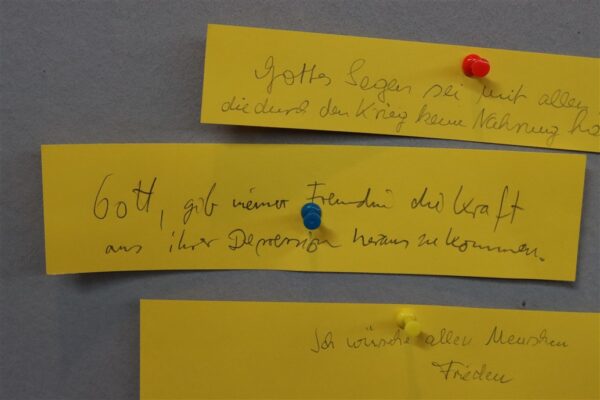 Gottes Segen sei mit allen
die durch den Krieg keine Nahrung ha
Gott, gib meiner Freundin die Kraft
aus ihrer Depression heraus zu kommen.
Ich wünsche allen Menschen
Frieden